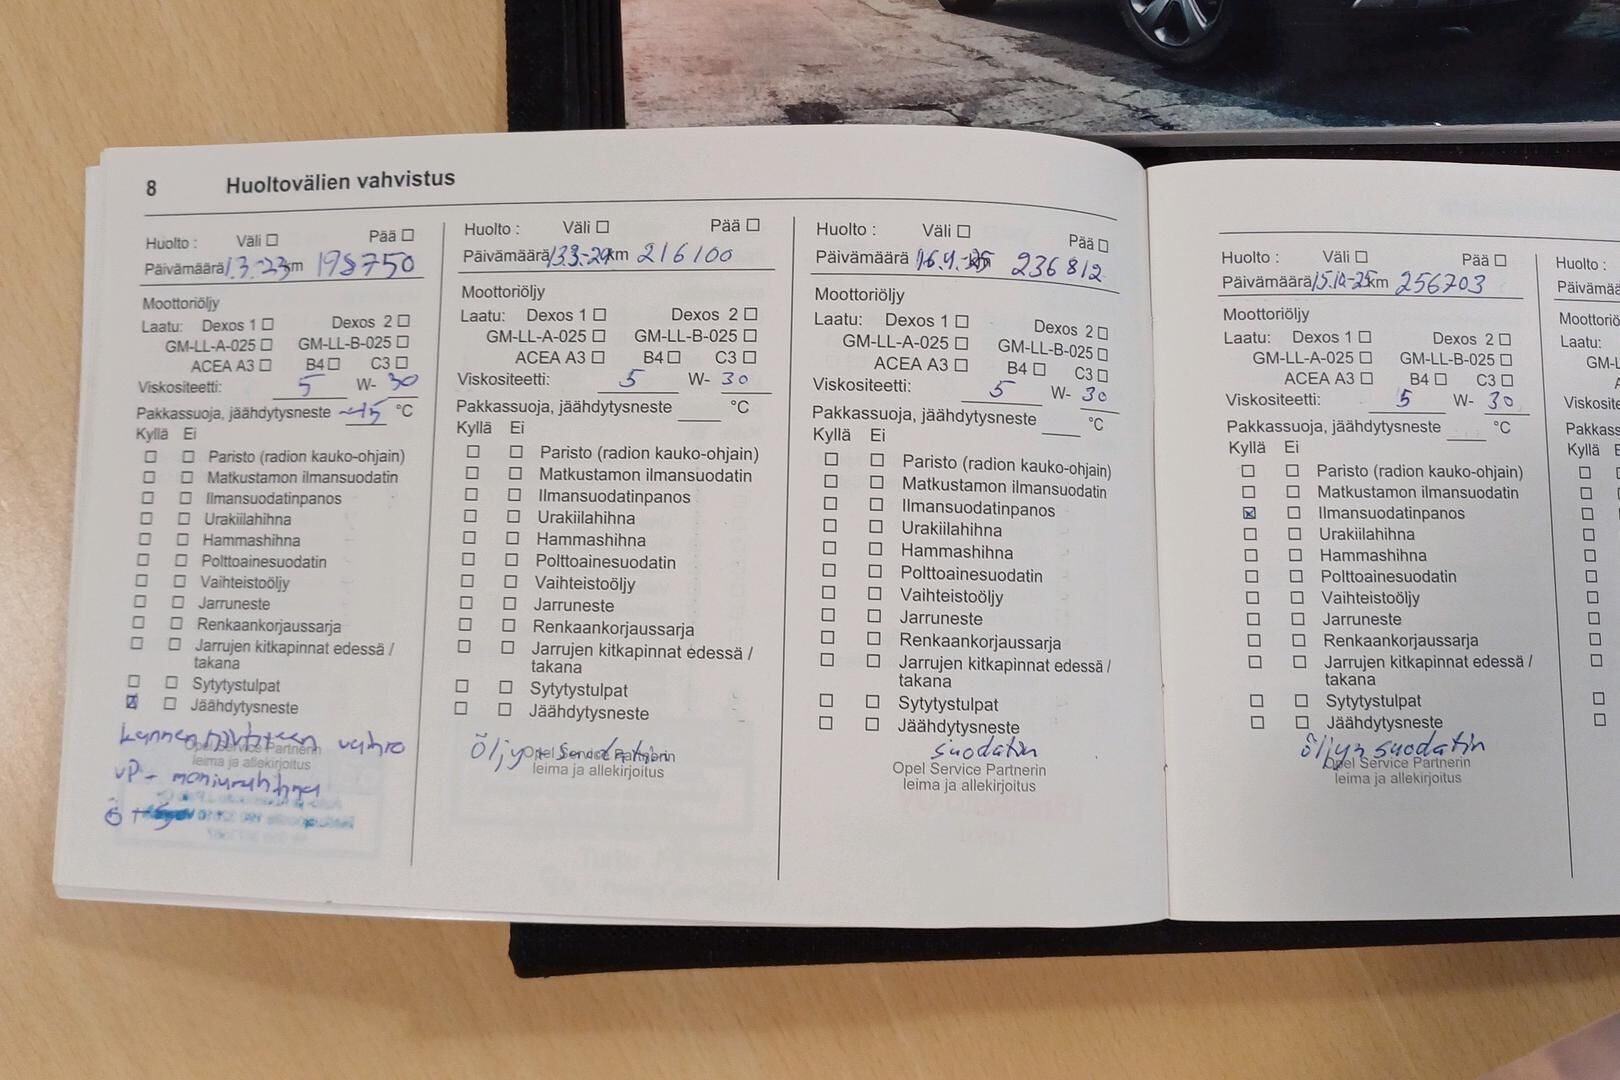 8 Huoltovälien vahvistus
Huolto : Väli ☐ Pää ☐
Päivämäärä 1.3.-23 km 198750
Moottoriöljy
Laatu: Dexos 1 ☐ Dexos 2 ☐
GM-LL-A-025 ☐ GM-LL-B-025 ☐
ACEA A3 ☐ B4 ☐ C3 ☐
Viskositeetti: 5 W- 30
Pakkassuoja, jäähdytysneste °C
Kyllä Ei
☐ ☐ Paristo (radion kauko-ohjain)
☐ ☐ Matkustamon ilmansuodatin
☐ ☐ Ilmansuodatinpanos
☐ ☐ Urakiilahihna
☐ ☐ Hammashihna
☐ ☐ Polttoainesuodatin
☐ ☐ Vaihteistoöljy
☐ ☐ Jarruneste
☐ ☐ Renkaankorjaussarja
☐ ☐ Jarrujen kitkapinnat edessä /
takana
☐ ☐ Sytytystulpat
☒ ☐ Jäähdytysneste
kannen
Opel Service Partnerin
leima ja allekirjoitus
VP- moniurahihna
Huolto : Väli ☐ Pää ☐
Päivämäärä km 216100
Moottoriöljy
Laatu: Dexos 1 ☐ Dexos 2 ☐
GM-LL-A-025 ☐ GM-LL-B-025 ☐
ACEA A3 ☐ B4 ☐ C3 ☐
Viskositeetti: 5 W- 30
Pakkassuoja, jäähdytysneste °C
Kyllä Ei
☐ ☐ Paristo (radion kauko-ohjain)
☐ ☐ Matkustamon ilmansuodatin
☐ ☐ Ilmansuodatinpanos
☐ ☐ Urakiilahihna
☐ ☐ Hammashihna
☐ ☐ Polttoainesuodatin
☐ ☐ Vaihteistoöljy
☐ ☐ Jarruneste
☐ ☐ Renkaankorjaussarja
☐ ☐ Jarrujen kitkapinnat edessä /
takana
☐ ☐ Sytytystulpat
☐ ☐ Jäähdytysneste
öljyn suodatin
Opel Service Partnerin
leima ja allekirjoitus
Huolto : Väli ☐ Pää ☐
Päivämäärä 16.4.-25 km 236812
Moottoriöljy
Laatu: Dexos 1 ☐ Dexos 2 ☐
GM-LL-A-025 ☐ GM-LL-B-025 ☐
ACEA A3 ☐ B4 ☐ C3 ☐
Viskositeetti: 5 W- 30
Pakkassuoja, jäähdytysneste °C
Kyllä Ei
☐ ☐ Paristo (radion kauko-ohjain)
☐ ☐ Matkustamon ilmansuodatin
☐ ☐ Ilmansuodatinpanos
☐ ☐ Urakiilahihna
☐ ☐ Hammashihna
☐ ☐ Polttoainesuodatin
☐ ☐ Vaihteistoöljy
☐ ☐ Jarruneste
☐ ☐ Renkaankorjaussarja
☐ ☐ Jarrujen kitkapinnat edessä /
takana
☐ ☐ Sytytystulpat
☐ ☐ Jäähdytysneste
suodatin
Opel Service Partnerin
leima ja allekirjoitus
Huolto : Väli ☐ Pää ☐
Päivämäärä 15.10-25 km 256703
Moottoriöljy
Laatu: Dexos 1 ☐ Dexos 2 ☐
GM-LL-A-025 ☐ GM-LL-B-025 ☐
ACEA A3 ☐ B4 ☐ C3 ☐
Viskositeetti: 5 W- 30
Pakkassuoja, jäähdytysneste °C
Kyllä Ei
☐ ☐ Paristo (radion kauko-ohjain)
☐ ☐ Matkustamon ilmansuodatin
☒ ☐ Ilmansuodatinpanos
☐ ☐ Urakiilahihna
☐ ☐ Hammashihna
☐ ☐ Polttoainesuodatin
☐ ☐ Vaihteistoöljy
☐ ☐ Jarruneste
☐ ☐ Renkaankorjaussarja
☐ ☐ Jarrujen kitkapinnat edessä /
takana
☐ ☐ Sytytystulpat
☐ ☐ Jäähdytysneste
öljyn suodatin
Opel Service Partnerin
leima ja allekirjoitus
Huolto :
Päivämää
Moottoriö
Laatu:
GM-L
Viskosite
Pakkass
Kyllä E